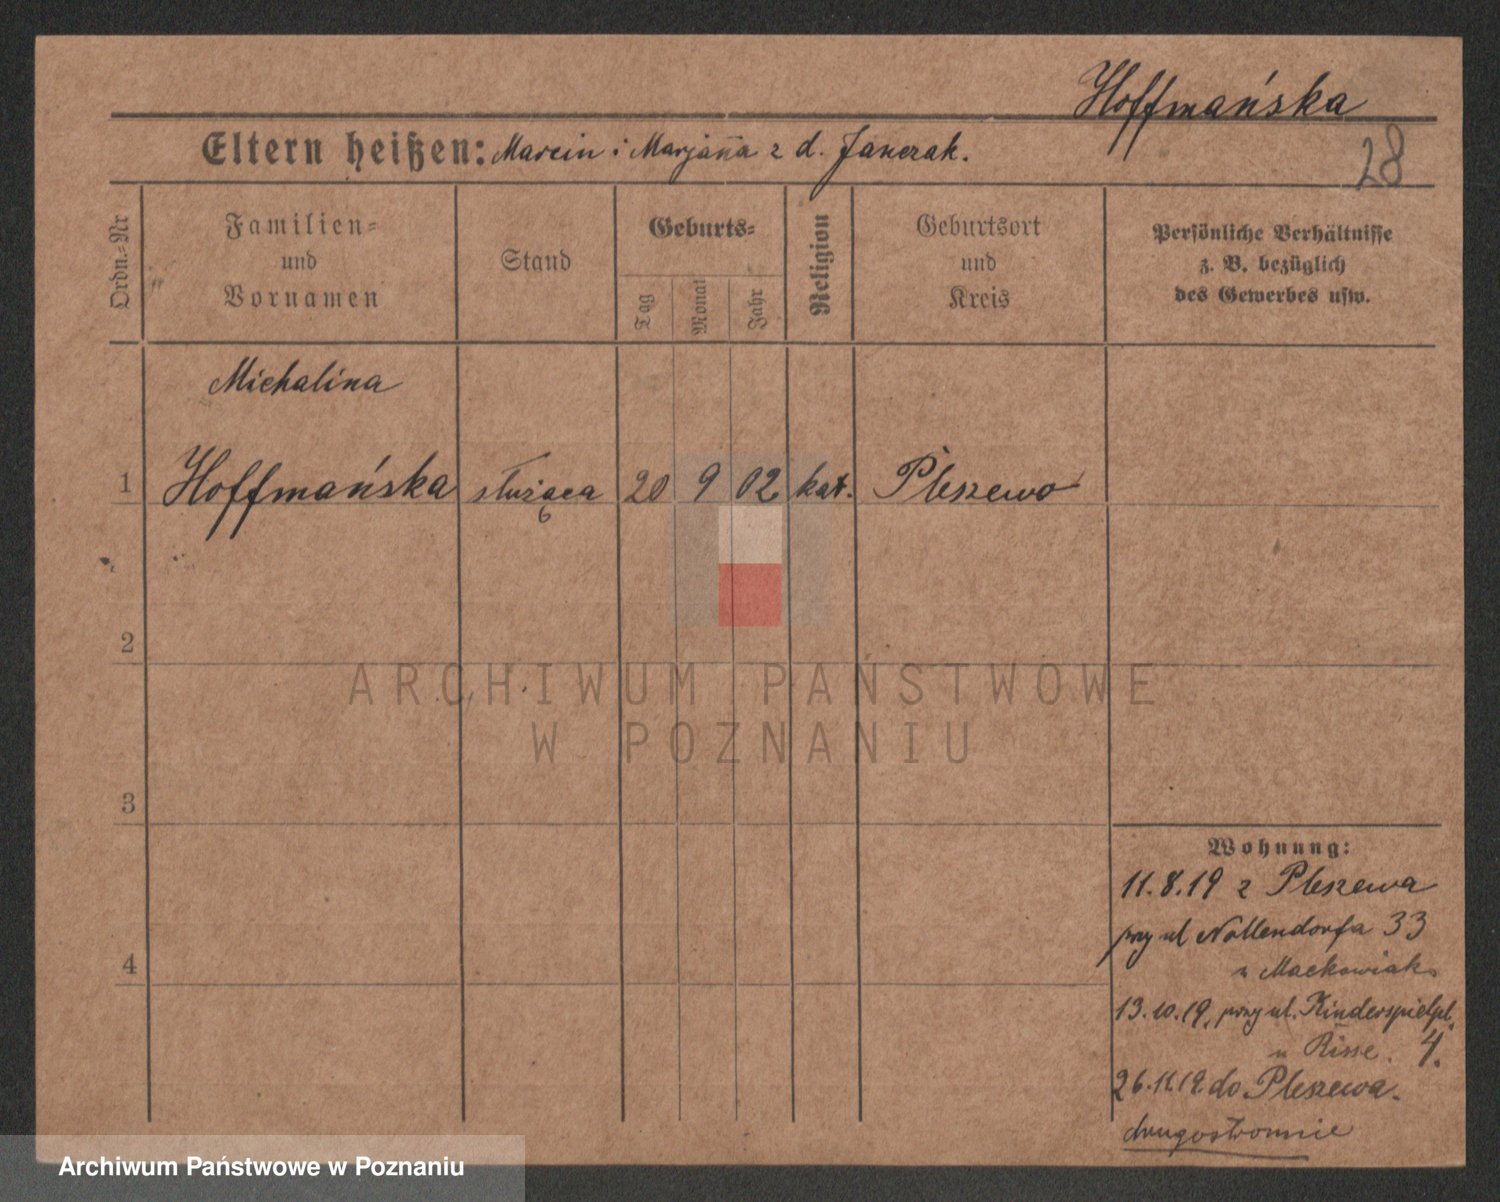 Hoffmańska
28
Eltern heißen: Marcin i Marjanna z d. Janczak.
Ordn.-Nr
Familien-
und
Vornamen
Stand
Geburts-
Tag
Monat
Jahr
Religion
Geburtsort
und
Kreis
Persönliche Verhältnisse
z. B. bezüglich
des Gewerbes usw.
Michalina
1 Hoffmańska służąca 20 9 02 kat. Pleszewo
2
3
4
ARCHIWUM PAŃSTWOWE
W POZNANIU
Wohnung:
11.8.19 z Pleszewa
przy ul Nollendorfa 33
u Maćkowiak
13.10.19. przy ul. Kinderspielpl.
u Risse. 4.
26.11.19 do Pleszewa.
drugostronnie
Archiwum Państwowe w Poznaniu